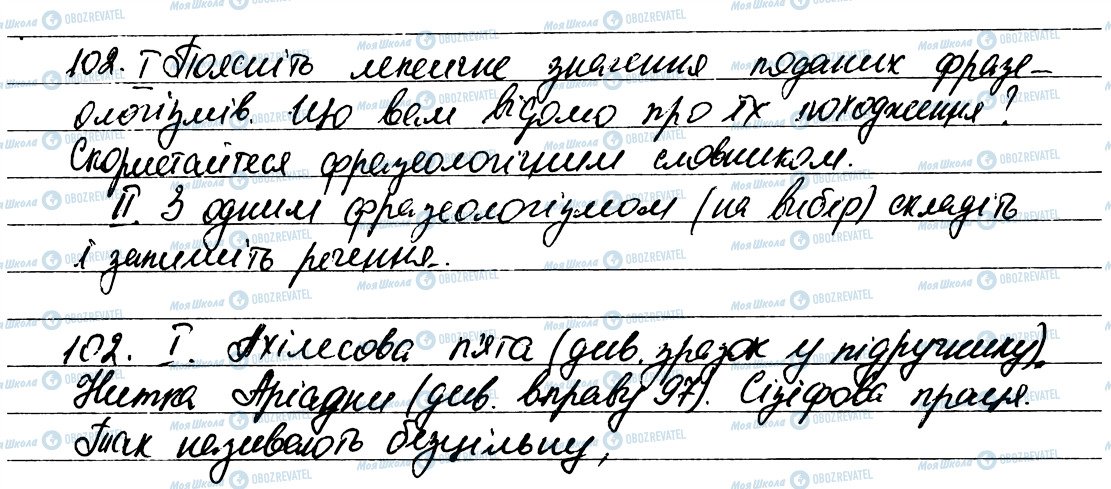 102. I Поясніть лексичне значення поданих фразе-
ологізмів. Що вам відомо про їх походження?
Скористайтеся фразеологічним словником.
II. З одним фразеологізмом (на вибір) складіть
і запишіть речення.
102. I. Ахілесова п'ята (див. зразок у підручнику).
Нитка Аріадни (див. вправу 97). Сізіфова праця.
Так називають безцільну,